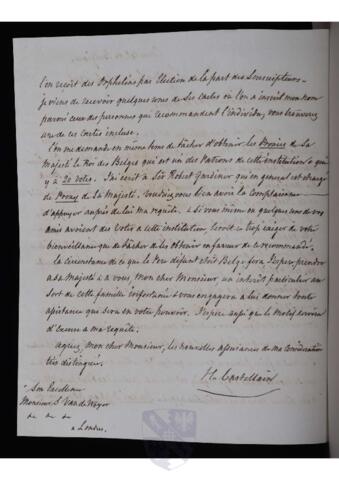 l'on reçoit des Orphelins par Election de la part des Souscripteurs.
je viens de recevoir quelques uns de ses cartes où l'on a inscrit mon nom
parmi ceux des personnes qui recommandent l'individu, vous trouverez
une de ces cartes incluse.
L'on me demande en même tems de tâcher d'obtenir les Proxies de Sa
Majesté le Roi des Belges qui est un des Patrons de cette institution & qui
y a 20 Votes. J'ai écrit à Sir Robert Gardiner qui en general est chargé
de Proxy de Sa Majesté. Voudriez vous bien avoir la complaisance
d'appuyer auprès de lui ma requête. & Si vous même ou quelques uns de vos
amis avoient des Votes à cette institution, seroit-ce trop exiger de votre
bienveillance que de tâcher de les obtenir en faveur de ce recommandé.
la circonstance de ce que le Pere défunt étoit Belge fera, j'espere, prendre
a sa Majesté & a vous, mon cher Monsieur un interêt particulier au
Sort de cette famille infortunée & vous engagera a lui donner toute
assistance qui sera en votre pouvoir. J'espere aussi que le motif servira
d'excuse a ma requête.
agréez, mon cher Monsieur, les nouvelles assurances de ma consideration
très distinguée.
H. Castellain
Son Excellence
Monsieur S. Van de Weyer
a Londres.